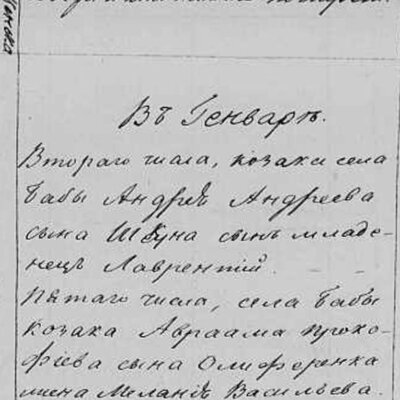 Въ Генварѣ.
Втораго числа, козака села
Бабы Андрея Андреева
сына Шбуна сынъ младе-
нецъ Лаврентій.
Пятаго числа, села Бабы
козака Авраама Проко-
фіева сына Олиференка
жена Меланія Васильева.